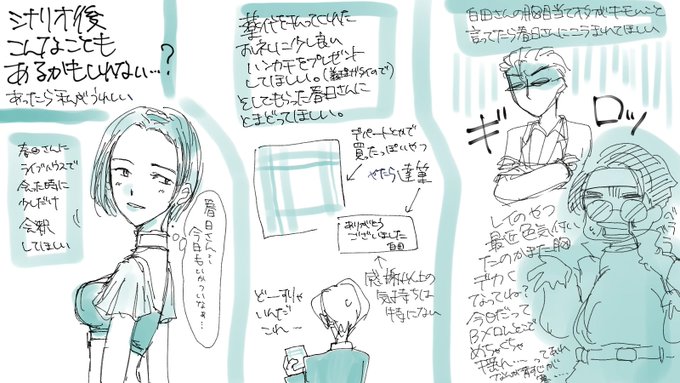 シナリオ後
こんなことも
あるかもしれない…?
あったら私がうれしい
春日さんに
ライブハウスで
会った時に
少しだけ
会釈
してほしい
春日さん…
今日もいかついなぁ…
薬代をはらってくれた
おれいに少し良い
ハンカチをプレゼント
してほしい。
そしてもらった春日さんに
とまどってほしい。
デパートとかで
買ったっぽいやつ
やたら達筆
ありがとう
ございました
白田
感謝以上の
気持ちは
特にない
どーすりゃ
いんだ
これ…
白田さんの胸目当てオタクがキモいこと
言ってたら春日さんににらまれてほしい
ギ
ロッ
レイのやつ
最近色気付い
たのかまた胸
デカく
なってね?
今日だって
めちゃくちゃ
揺れ…